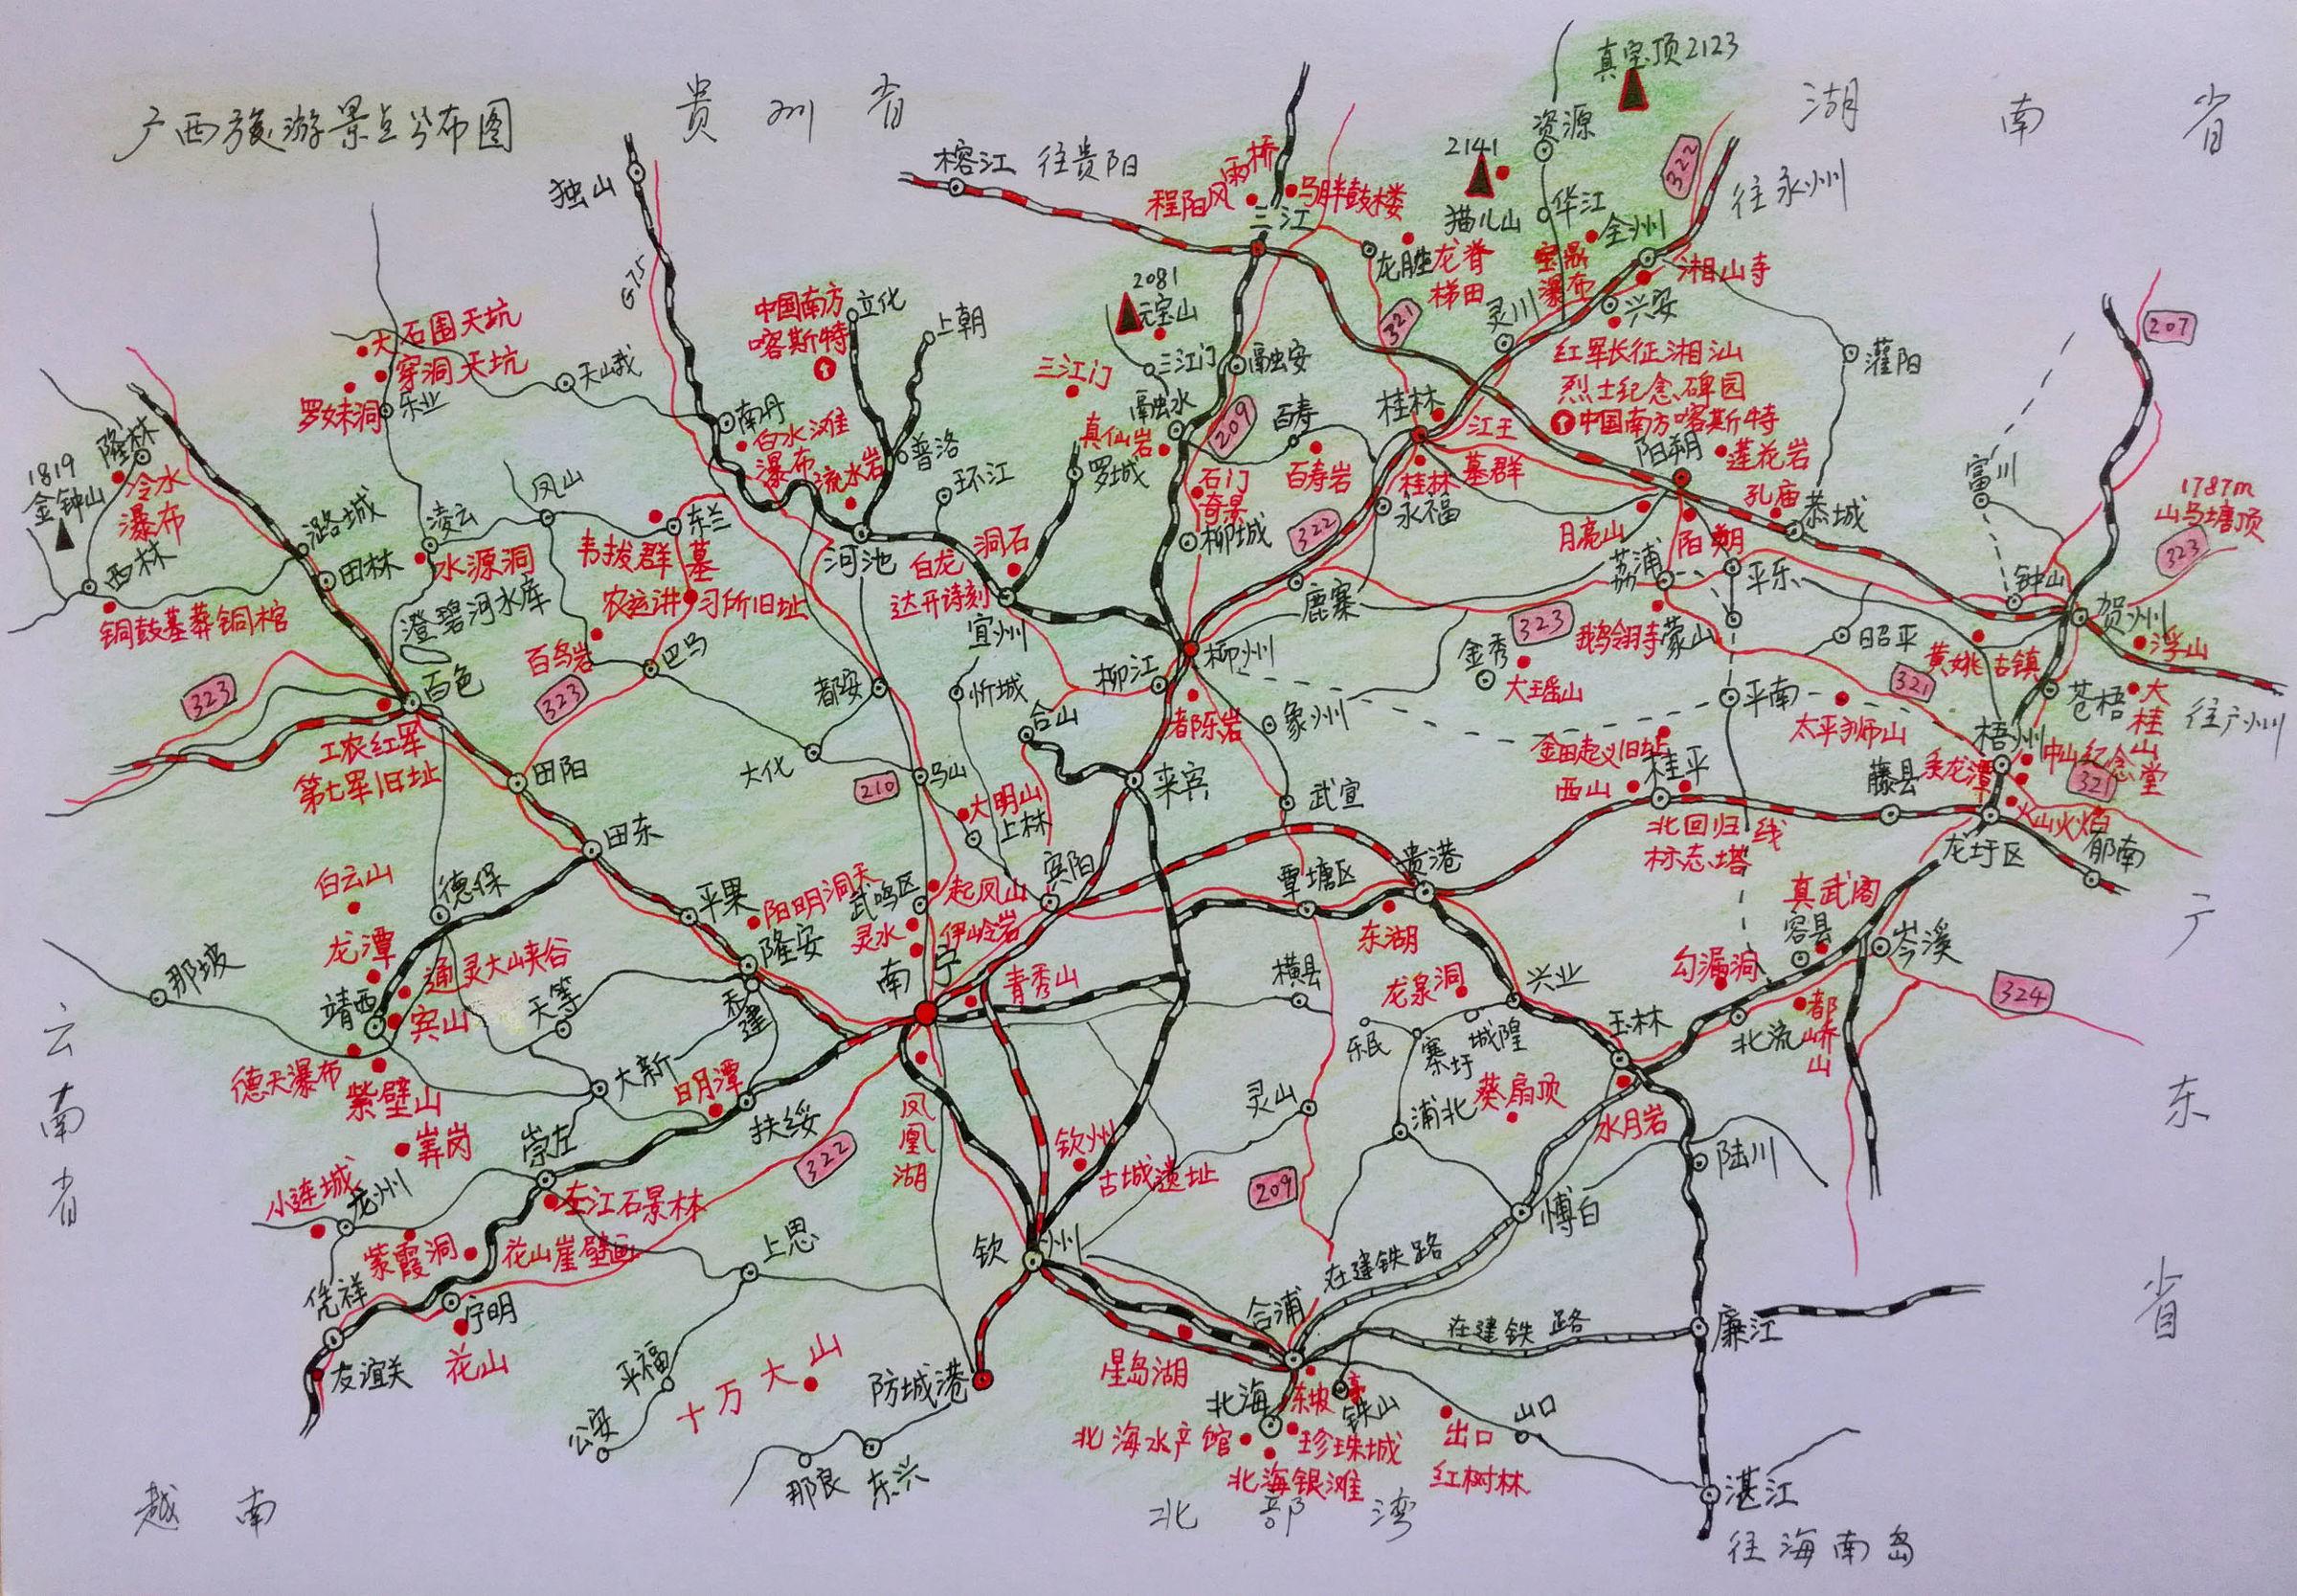 广西旅游景点分布图
贵州省
湖南省
真宝顶2123
资源
2141
猫儿山
华江
322
往永州
榕江 往贵阳
独山
G75
程阳风雨桥
马胖鼓楼
三江
龙胜
龙脊
梯田
宝鼎
瀑布
全州
湘山寺
灵川
兴安
321
207
灌阳
红军长征湘江
烈士纪念碑园
中国南方喀斯特
中国南方
喀斯特
立化
上朝
2081
元宝山
三江门
三江门
融安
融水
209
百寿
百寿岩
桂林
江王
墓群
桂林
永福
阳朔
莲花岩
孔庙
恭城
富川
1787m
山马塘顶
323
月亮山
阳朔
大石围天坑
穿洞天坑
罗妹洞
乐业
天峨
南丹
白水滩
瀑布
流水岩
普洛
环江
罗城
真仙岩
石门
奇景
柳城
322
隆林
1819
金钟山
冷水
瀑布
西林
铜鼓墓葬铜棺
潞城
田林
凌云
水源洞
凤山
东兰
韦拔群墓
农运讲习所旧址
河池
白龙
洞石
达开诗刻
宜州
鹿寨
荔浦
平乐
钟山
贺州
浮山
澄碧河水库
百鸟岩
巴马
323
323
百色
工农红军
第七军旧址
都安
忻城
合山
柳江
柳州
都乐岩
象州
金秀
大瑶山
323
鹅翎寺
蒙山
昭平
黄姚古镇
321
平南
太平狮山
苍梧
大桂山
往广州
梧州
中山纪念堂
321
田阳
大化
210
马山
大明山
上林
来宾
武宣
金田起义旧址
西山
桂平
北回归线
标志塔
藤县
龙圩区
火山火焰
郁南
田东
平果
阳明洞天
武鸣区
起凤山
宾阳
灵水
伊岭岩
覃塘区
贵港
东湖
真武阁
容县
岑溪
324
白云山
德保
龙潭
通灵大峡谷
靖西
宾山
那坡
天等
隆安
在建
南宁
青秀山
横县
龙泉洞
兴业
城隍
乐民
寨圩
葵扇顶
勾漏洞
玉林
北流
都峤山
德天瀑布
紫壁山
大新
日月潭
扶绥
崇左
左江石景林
322
凤凰湖
钦州
古城遗址
灵山
浦北
水月岩
陆川
209
博白
云南省
广东省
小连城
龙州
紫霞洞
花山崖壁画
凭祥
宁明
花山
友谊关
上思
平福
公安
十万大山
钦州
防城港
那良
东兴
在建铁路
在建铁路
合浦
廉江
星岛湖
北海
铁山
北海水产馆
珍珠城
北海银滩
山口
出口
红树林
湛江
往海南岛
越南
北部湾